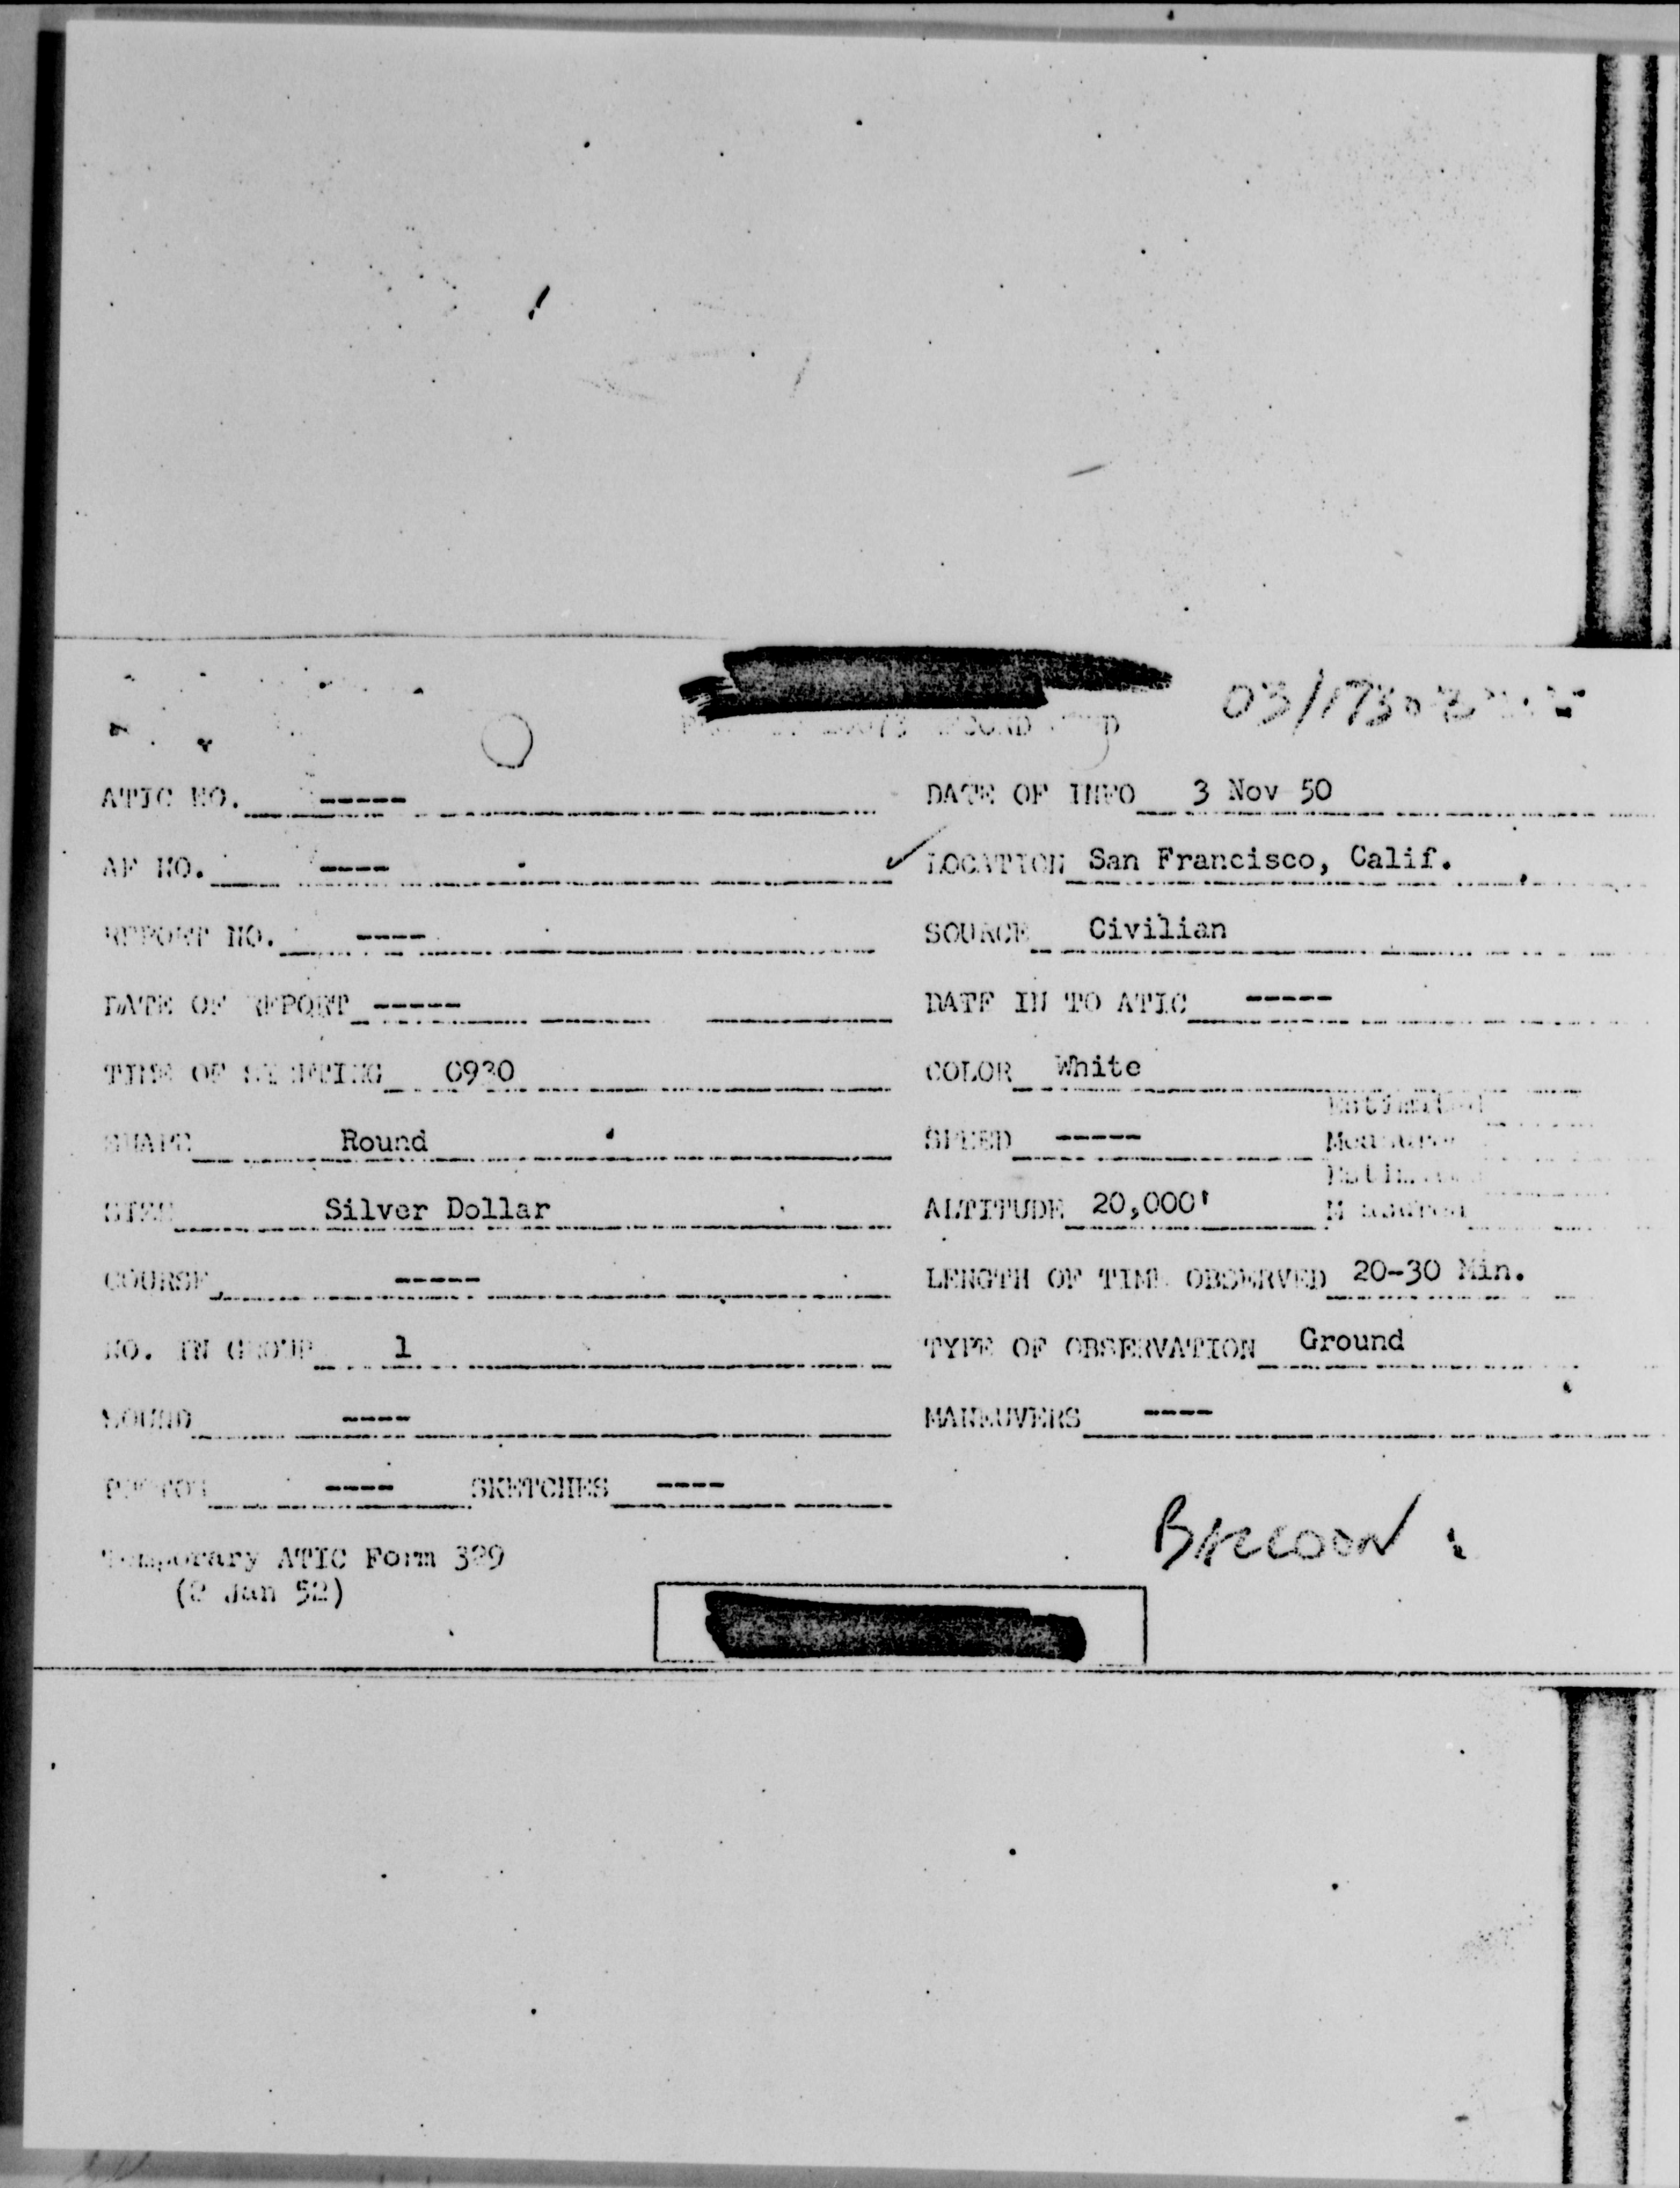 03/1730Z
ATIC NO. ----- DATE OF INFO 3 Nov 50
AF NO. ---- ✓ LOCATION San Francisco, Calif.
REPORT NO. ---- SOURCE Civilian
DATE OF REPORT ----- DATE IN TO ATIC -----
TIME OF SIGHTING 0930 COLOR White
Estimated
SHAPE Round SPEED ----- Measured
Estimated
SIZE Silver Dollar ALTITUDE 20,000' Measured
COURSE ----- LENGTH OF TIME OBSERVED 20-30 Min.
NO. IN GROUP 1 TYPE OF OBSERVATION Ground
SOUND ---- MANEUVERS ----
PHOTOS ---- SKETCHES ----
BALLOON
Temporary ATIC Form 329
(2 Jan 52)